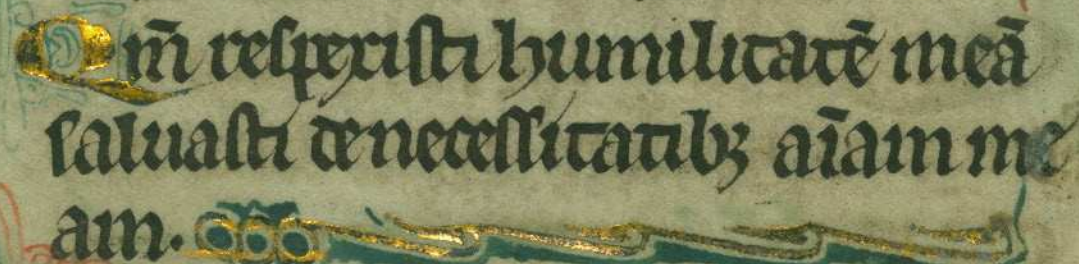 Qm̄ respexisti humilitatē meā
saluasti de necessitatibꝫ aīam me
am.